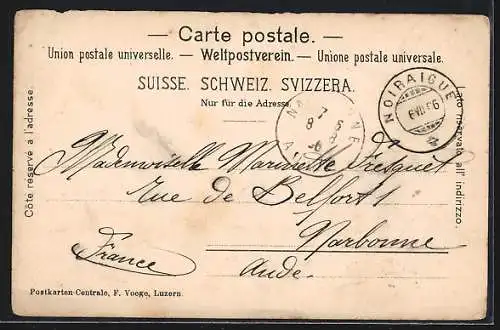 — Carte postale. —
Union postale universelle. — Weltpostverein. — Unione postale universale.
SUISSE. SCHWEIZ. SVIZZERA.
Nur für die Adresse.
Côté réservé à l'adresse.
Lato riservato all' indirizzo.
NOIRAIGUE
Mademoiselle Marinette
rue de Belfort 1
Narbonne
France
Aude.
Postkarten-Centrale, F. Voege, Luzern.